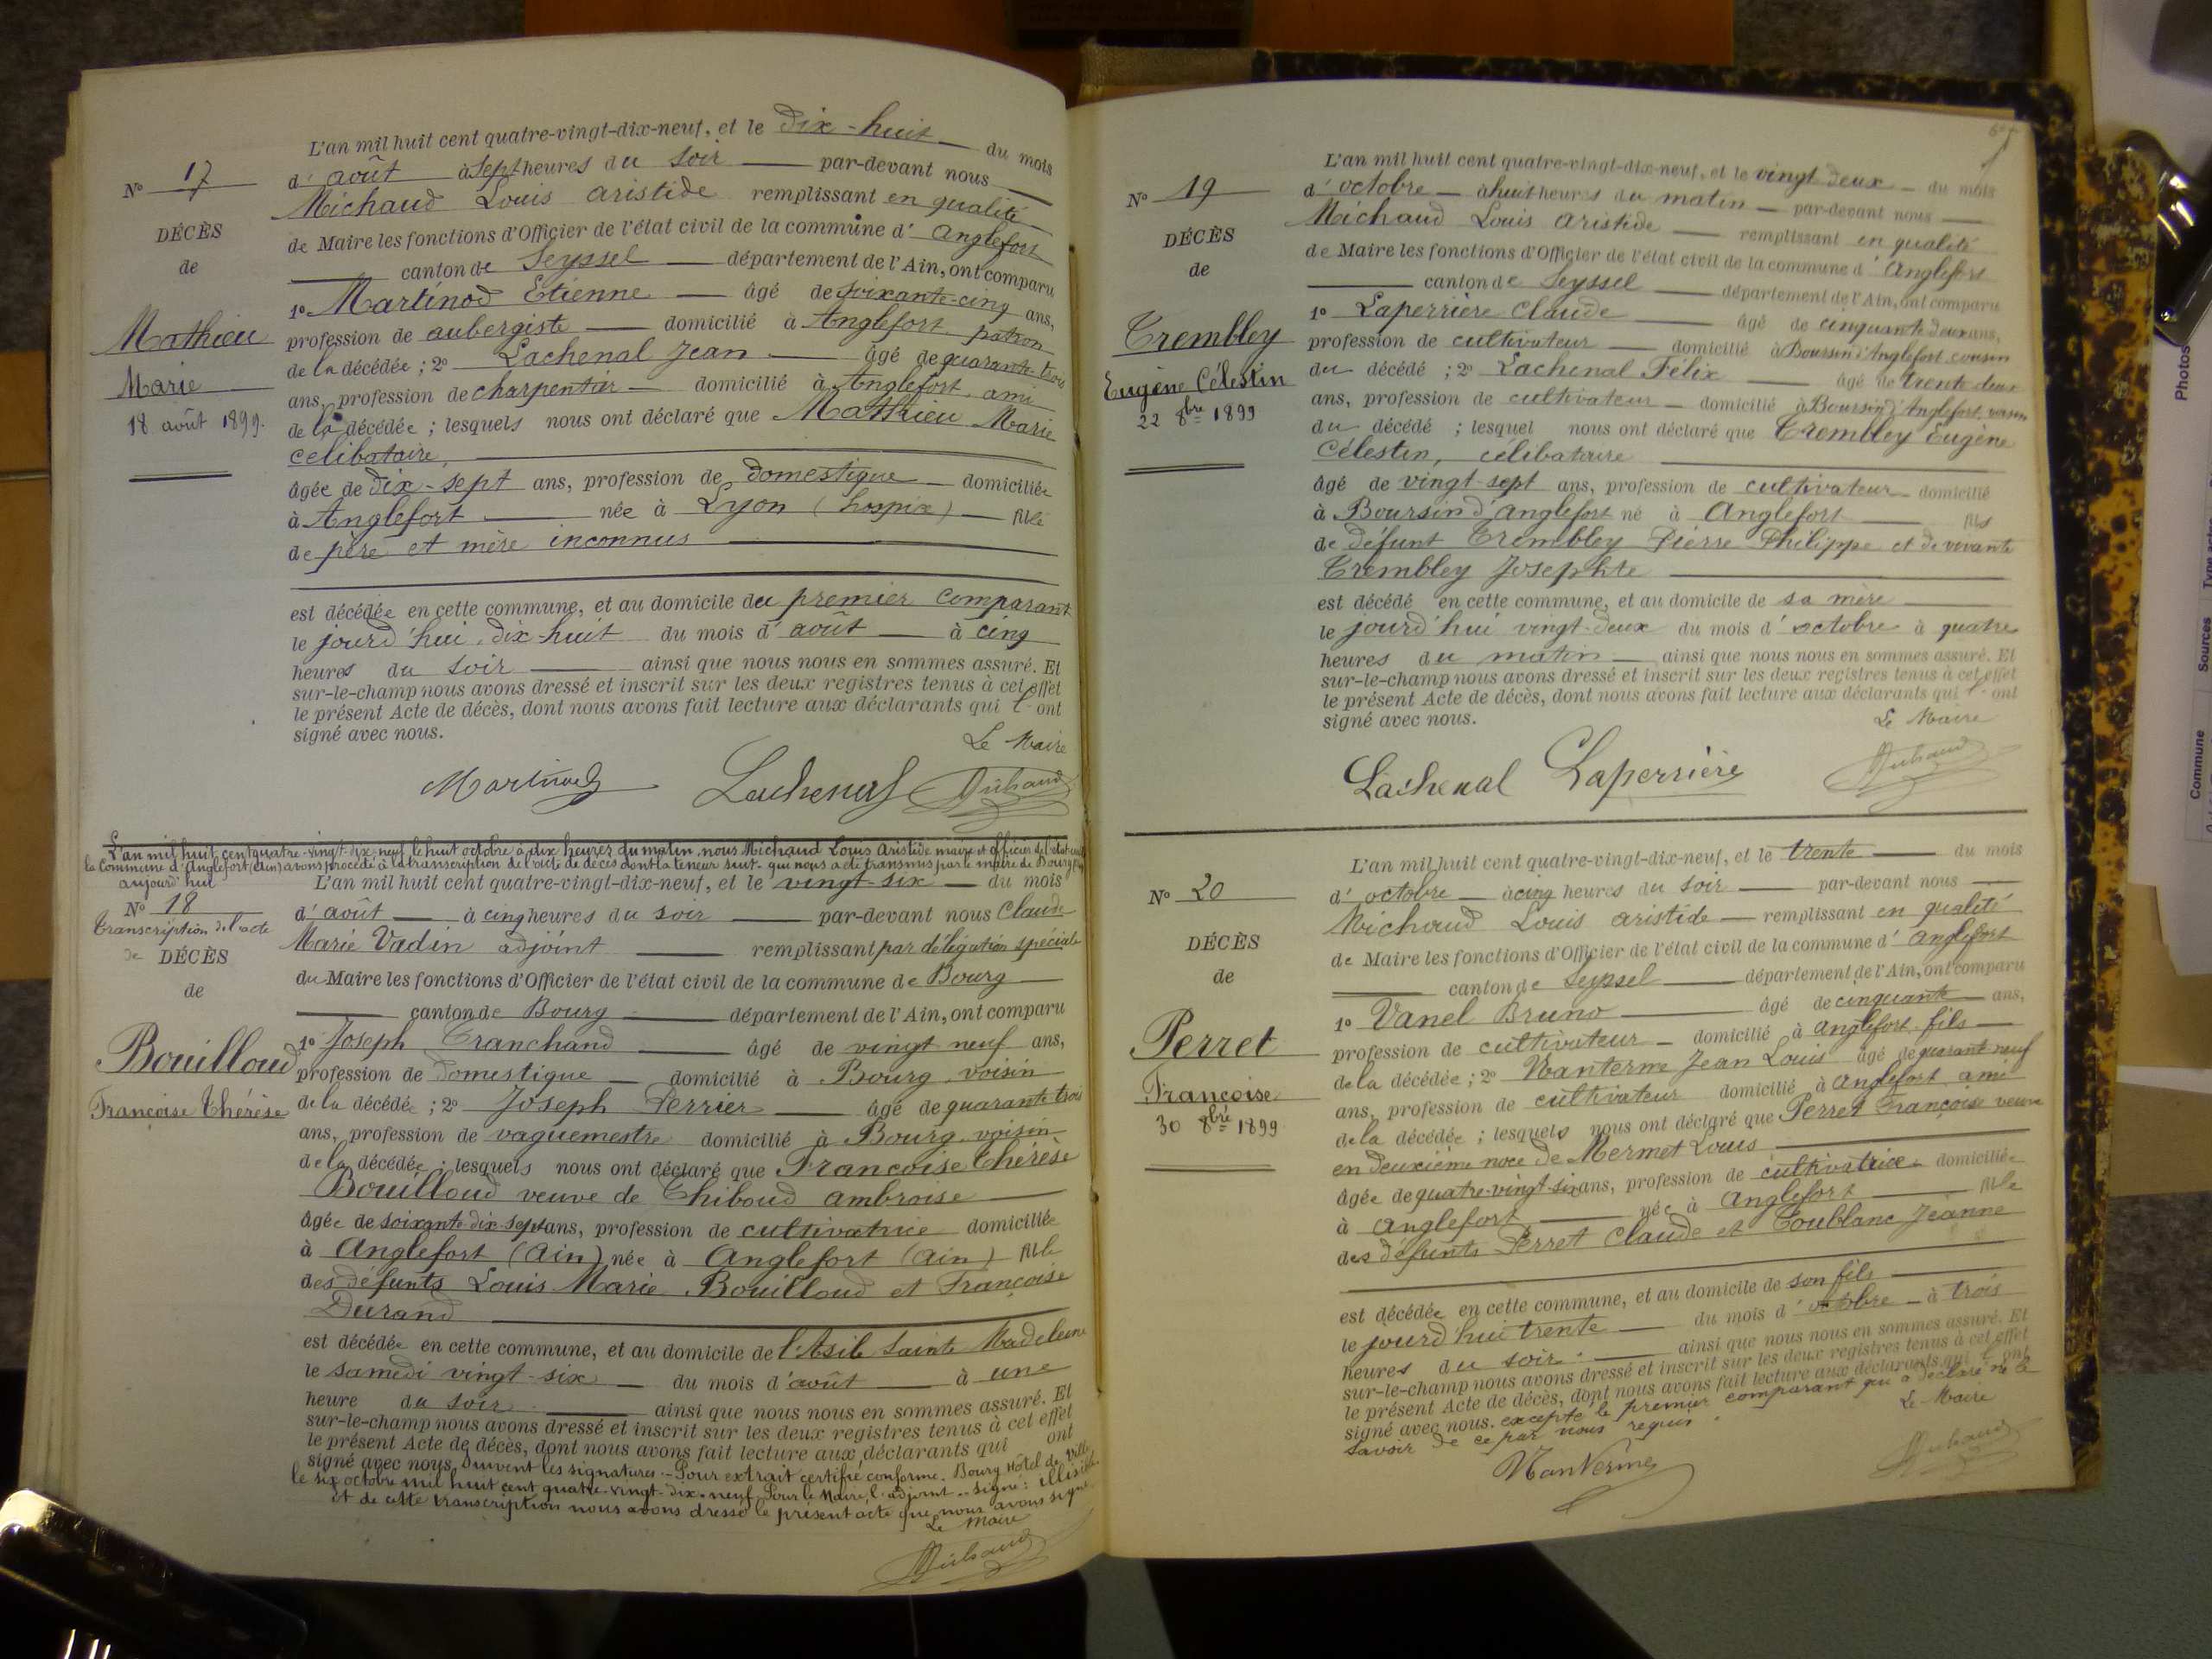 L'an mil huit cent quatre-vingt-dix-neuf, et le dix-huit du mois
N° 17
d'août à Sept heures du soir par-devant nous
Michaud Louis aristide remplissant en qualité
DÉCÈS
de Maire les fonctions d'Officier de l'état civil de la commune d'anglefort
de
canton de Seyssel département de l'Ain, ont comparu
1° Martinod Etienne âgé de soixante-cinq ans,
Mathieu
profession de aubergiste domicilié à Anglefort patron
de la décédée ; 2° Lachenal Jean âgé de quarante trois
Marie
ans, profession de charpentier domicilié à Anglefort, ami
18 août 1899.
de la décédée ; lesquels nous ont déclaré que Mathieu Marie
celibataire,
âgée de dix-sept ans, profession de domestique domiciliée
à Anglefort née à Lyon (hospice) fille
de père et mère inconnus
est décédée en cette commune, et au domicile du premier comparant
le jourd'hui dix-huit du mois d'août à cinq
heures du soir ainsi que nous nous en sommes assuré. Et
sur-le-champ nous avons dressé et inscrit sur les deux registres tenus à cet effet
le présent Acte de décès, dont nous avons fait lecture aux déclarants qui l'ont
signé avec nous.
Le Maire
Martinod Lachenal
L'an mil huit cent quatre-vingt-dix-neuf le huit octobre à dix heures du matin, nous Michaud Louis Aristide maire et officier de l'état civil
la Commune d'Anglefort (Ain) avons procédé à la transcription de l'acte de décès dont la teneur suit qui nous a été transmis par le maire de Bourg
aujourd'hui
L'an mil huit cent quatre-vingt-dix-neuf, et le vingt-six du mois
N° 18
d'août à cinq heures du soir par-devant nous Claude
Transcription de l'acte
Marie Vadin adjoint remplissant par délégation spéciale
de DÉCÈS
du Maire les fonctions d'Officier de l'état civil de la commune de Bourg
de
canton de Bourg département de l'Ain, ont comparu
1° Joseph Tranchand âgé de vingt neuf ans,
Bouilloud
profession de domestique domicilié à Bourg, voisin
Françoise Thérèse
de la décédée ; 2° Joseph Perrier âgé de quarante-trois
ans, profession de vaguemestre domicilié à Bourg, voisin
de la décédée ; lesquels nous ont déclaré que Françoise Thérèse
Bouilloud veuve de Thiboud ambroise
âgée de soixante-dix-sept ans, profession de cultivatrice domiciliée
à Anglefort (ain) née à Anglefort (ain) fille
des défunts Louis Marie Bouilloud et Françoise
Durand
est décédée en cette commune, et au domicile de l'Asile Sainte Madeleine
le samedi vingt-six du mois d'août à une
heure du soir ainsi que nous nous en sommes assuré. Et
sur-le-champ nous avons dressé et inscrit sur les deux registres tenus à cet effet
le présent Acte de décès, dont nous avons fait lecture aux déclarants qui ont
signé avec nous. Suivent les signatures. - Pour extrait certifié conforme. Bourg Hôtel de Ville
le six octobre mil huit cent quatre-vingt-dix-neuf. Pour le Maire, l'adjoint - signé : illisible.
Et de cette transcription nous avons dressé le présent acte que nous avons signé
Le Maire
L'an mil huit cent quatre-vingt-dix-neuf, et le vingt deux du mois
N° 19
d'octobre à huit heures du matin par-devant nous
Michaud Louis aristide remplissant en qualité
DÉCÈS
de Maire les fonctions d'Officier de l'état civil de la commune d'Anglefort
de
canton de Seyssel département de l'Ain, ont comparu
1° Laperrière Claude âgé de cinquante deux ans,
Trembley
profession de cultivateur domicilié à Boursin d'Anglefort cousin
Eugène Célestin
du décédé ; 2° Lachenal Félix âgé de trente deux
22 8bre 1899
ans, profession de cultivateur domicilié à Boursin d'Anglefort, voisin
du décédé ; lesquel nous ont déclaré que Trembley Eugène
Célestin, célibataire
âgé de vingt-sept ans, profession de cultivateur domicilié
à Boursin d'anglefort né à Anglefort fils
de défunt Trembley Pierre Philippe et de vivante
Trembley Josephte
est décédé en cette commune, et au domicile de sa mère
le jourd'hui vingt-deux du mois d'octobre à quatre
heures du matin ainsi que nous nous en sommes assuré. Et
sur-le-champ nous avons dressé et inscrit sur les deux registres tenus à cet effet
le présent Acte de décès, dont nous avons fait lecture aux déclarants qui l'ont
signé avec nous.
Le Maire
Lachenal Laperrière
L'an mil huit cent quatre-vingt-dix-neuf, et le trente du mois
N° 20
d'octobre à cinq heures du soir par-devant nous
Michaud Louis aristide remplissant en qualité
DÉCÈS
de Maire les fonctions d'Officier de l'état civil de la commune d'anglefort
de
canton de Seyssel département de l'Ain, ont comparu
1° Vanel Bruno âgé de cinquante ans,
Perret
profession de cultivateur domicilié à anglefort, fils
de la décédée ; 2° Nanterme Jean Louis âgé de quarant neuf
Françoise
ans, profession de cultivateur domicilié à anglefort ami
30 8bre 1899
de la décédée ; lesquels nous ont déclaré que Perret Françoise veuve
en deuxième noce de Mermet Louis
âgée de quatre-vingt-six ans, profession de cultivatrice domiciliée
à anglefort née à anglefort fille
des défunts Perret Claude et Toublanc Jeanne
est décédée en cette commune, et au domicile de son fils
le jourd'hui trente du mois d'octobre à trois
heures du soir ainsi que nous nous en sommes assuré. Et
sur-le-champ nous avons dressé et inscrit sur les deux registres tenus à cet effet
le présent Acte de décès, dont nous avons fait lecture aux déclarants qui l'ont
signé avec nous. excepté le premier comparant qui a déclaré ne le
savoir de ce par nous requis.
Le Maire
Nanterme
Photos
Sources
Commune